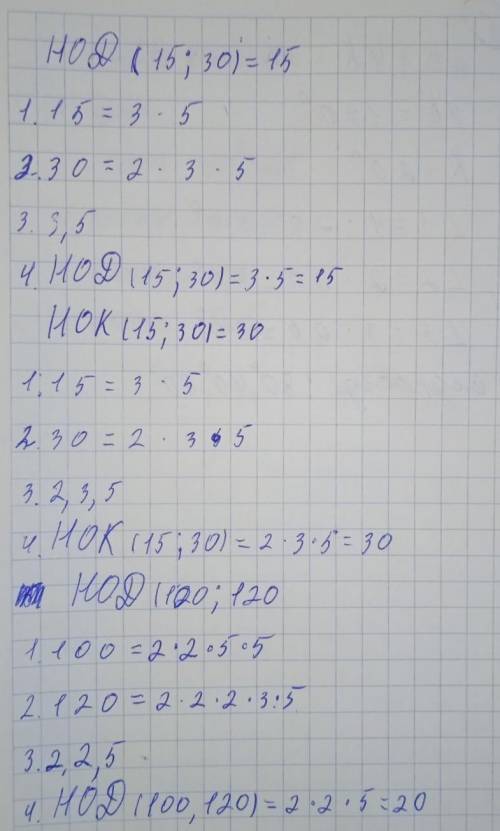 НОД (15; 30) = 15
1. 15 = 3 · 5
2. 30 = 2 · 3 · 5
3. 3, 5
4. НОД (15; 30) = 3 · 5 = 15
НОК (15; 30) = 30
1. 15 = 3 · 5
2. 30 = 2 · 3 · 5
3. 2, 3, 5
4. НОК (15; 30) = 2 · 3 · 5 = 30
НОД (120; 120
1. 100 = 2 · 2 · 5 · 5
2. 120 = 2 · 2 · 2 · 3 : 5
3. 2, 2, 5
4. НОД (100, 120) = 2 · 2 · 5 = 20